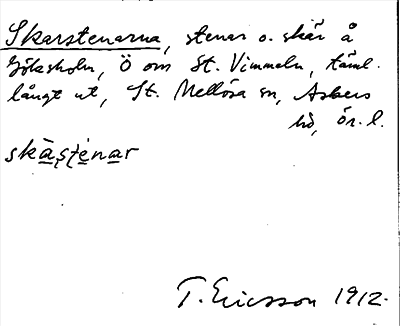 Skarstenarna, stenar o. skär å
Göksholm, Ö om St. Vimmeln, täml.
långt ut, St. Mellösa sn, Askers
hd, ör. l.
skàştenar
T. Ericsson 1912.